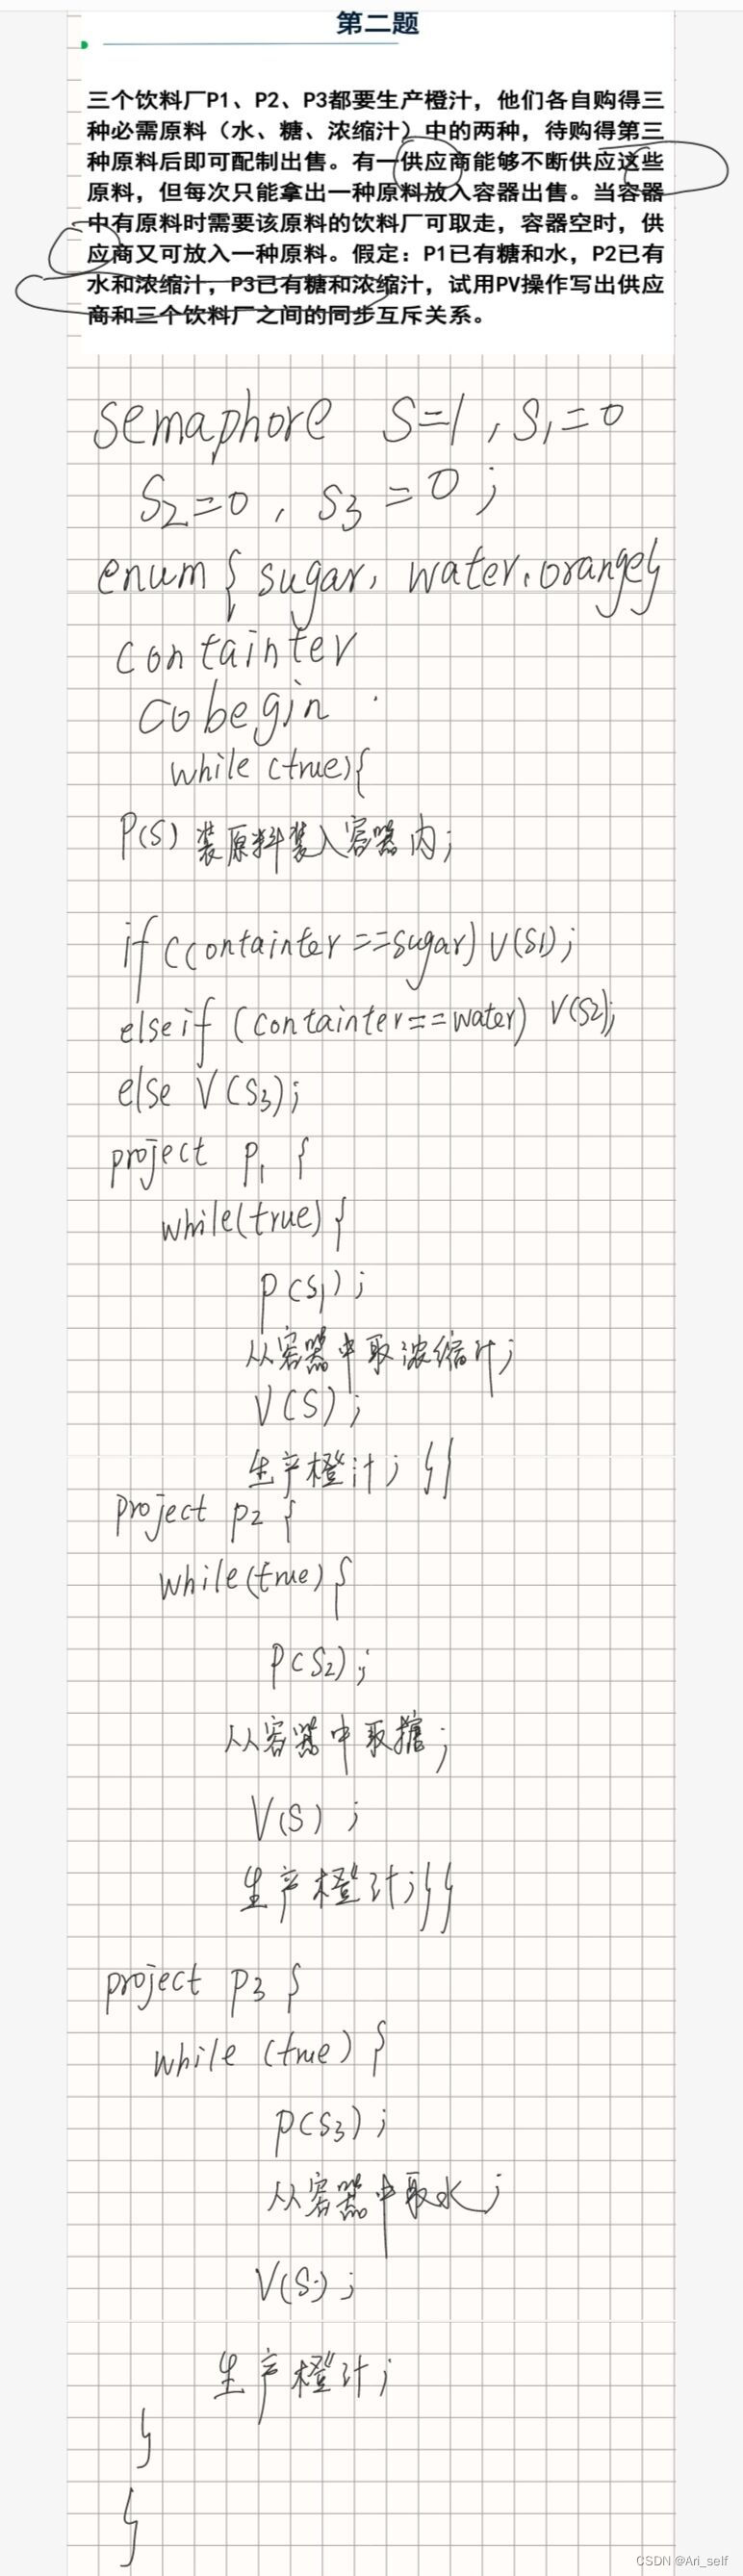 第二题
三个饮料厂P1、P2、P3都要生产橙汁，他们各自购得三
种必需原料（水、糖、浓缩汁）中的两种，待购得第三
种原料后即可配制出售。有一供应商能够不断供应这些
原料，但每次只能拿出一种原料放入容器出售。当容器
中有原料时需要该原料的饮料厂可取走，容器空时，供
应商又可放入一种原料。假定：P1已有糖和水，P2已有
水和浓缩汁，P3已有糖和浓缩汁，试用PV操作写出供应
商和三个饮料厂之间的同步互斥关系。
semaphore S=1，S1=0
S2=0，S3=0；
enum{sugar，water，orange}
containter
cobegin
while(true){
P(S) 装原料装入容器内；
if(containter==sugar)V(S1)；
elseif(containter==water) V(S2)；
else V(S3)；
project P1{
while(true){
P(S1)；
从容器中取浓缩汁；
V(S)；
生产橙汁；}}
project P2{
while(true){
P(S2)；
从容器中取糖；
V(S)；
生产橙汁；}}
project P3{
while(true){
P(S3)；
从容器中取水；
V(S)；
生产橙汁；
}
}
CSDN @Ari_self